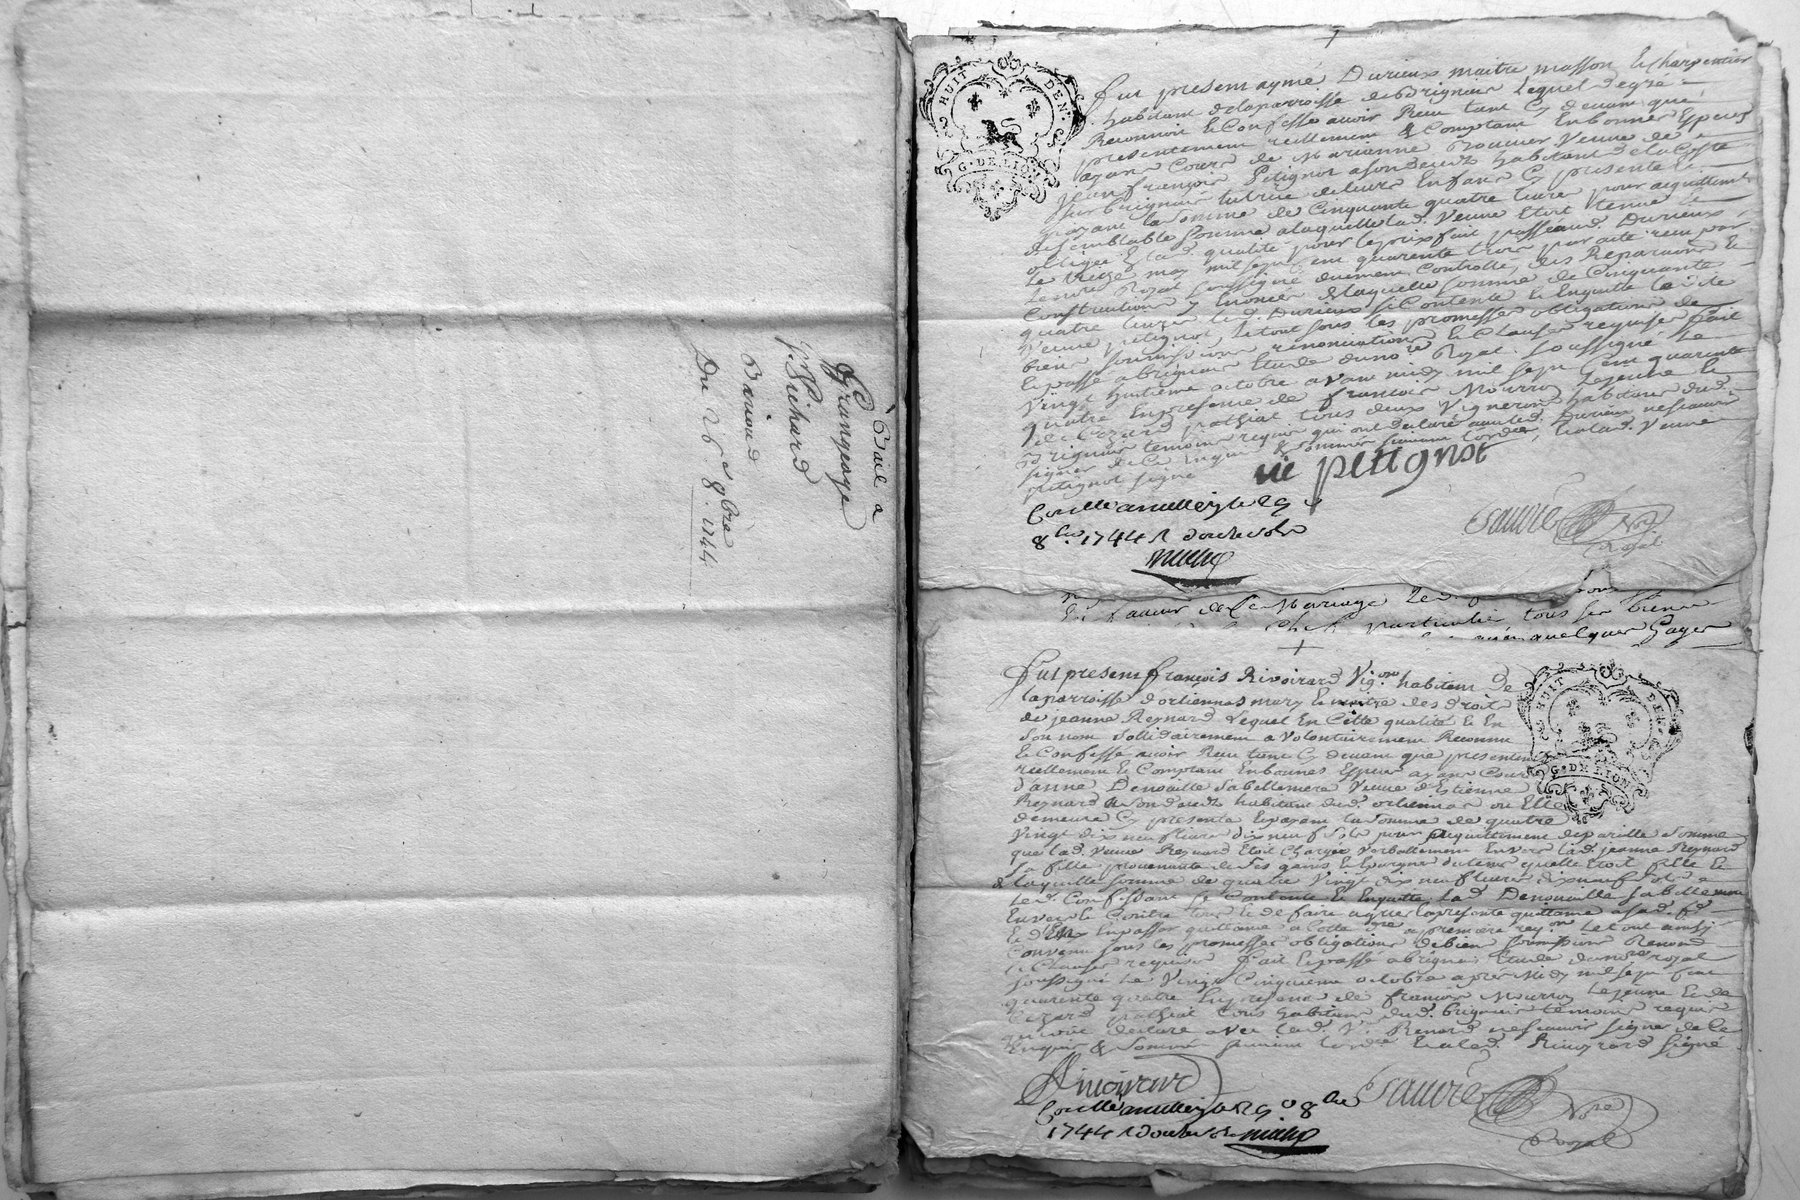 Bail a
Grangeage
Pr. Sichard
Bariou d
Du 26e 8bre 1744
HUIT DENrs
G. DE LION
fut present aymé Durieux maitre masson & charpentier
habitant de la parroisse de Brignais lequel de gré
Reconnoit & Confesse avoir Receu tant cy devant que
presentement reellement & Comptant En bonnes Especes
ayant Cours de Marianne Veuve de
jean françois Petignot a son deceds habitant de la Coste
sur brignais tutrice de leurs Enfans cy presente &
payant la somme de Cinquante quatre livres pour acquittement
de semblable somme a laquelle lad. Veuve Etoit tenue &
obligee En lad. qualité pour le prixfait passé aud. Durieux
le treize may mil sept cent quarente trois par acte receu par
le nore Royal soussigné duement Controllé, des Reparaõns &
Constructions y Enoncées de laquelle somme de Cinquante
quatre livres led. Durieux se Contente & En quitte lad.
Veuve petignot, le tout sous les promesses obligations de
biens soumissions renonciations & Clauses requises fait
& passé a brignais Etude du nore Royal soussigné le
Vingt huitieme octobre avant midy mil sept Cent quarente
quatre En presence de françois Mourroz lejeune &
de Cezard pathiat tous deux Vignerons habitans dud.
Brignais temoins requis qui ont declaré avec led. Durieux ne scavoir
signer de Ce Enquis & sommés suivant l'ordce, & lad. Veuve
petignot signé
ve petignot
Conllé a millery le 29
8bre 1744 R douze sols
fsauvré Nore
Royal
En faveur de Ce Mariage Led.
particulier tous ses biens
quelques Gages
HUIT DENrs
G. DE LION
fut present françois Rivoirard Vigon habitant de
la parroisse d'orliennas mary & maitre des droits
de jeanne Reynard Lequel En Cette qualité & En
son nom sollidairement a volontairement Reconnu
& Confessé avoir Receu tant cy devant que presentem
reellement & Comptant En bonnes Especes ayant Cours
d'anne Denouille sa bellemere Veuve d'Estienne
Reynard a son deceds habitant dud. orliennas ou Elle
demeure cy presente & payant la somme de quatre
Vingt dix neuf livres dix neuf sols pour acquittement de pareille somme
que lad. Veuve Reynard Etoit Chargée verballement Envers lad. jeanne Reynard
sa fille provenante de ses gains & Epargnes du tems quelle Etoit fille &
de laquelle somme de quatre Vingt dix neuf livres dix neuf sols
led. Confessant se Contente & En quitte lad. Denouille sa bellemere
Envers & Contre tous & de faire agreer la presente quittance a sad. fe
& d'En passer quittance a Cotte a premiere reqon le tout ainsy
Convenu sous les promesses obligations de biens soumissions Renonõns
& Clauses requises fait & passé a brignais Etude du nore royal
soussigné le Vingt Cinquieme octobre apres Midy mil sept Cent
quarente quatre En presence de françois Mourroz lejeune & de
Cezard pathiat tous habitans dud. brignais temoins requis
qui ont declaré avec lad. Ve Renard ne scavoir signer de Ce
Enquis & sommés suivant l'ordce & led. Rivoirard signé
Rivoirard
Conllé a millery le 29 8bre
1744 R douze sols
fsauvré Nore
Royal